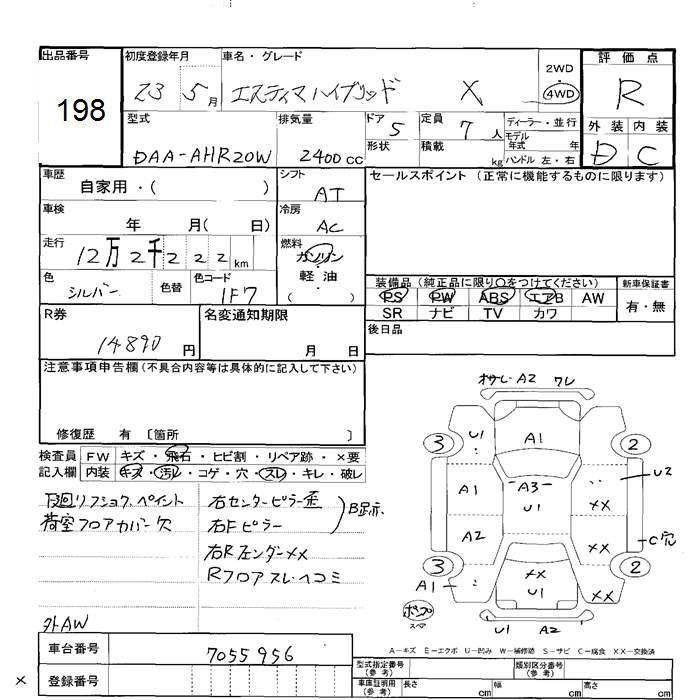 出品番号 初度登録年月 車名・グレード 2WD 4WD 評価点
198 23 5月 エスティマハイブリッド X R
型式 排気量 ドア 5 定員 7人 ディーラー・並行 外装 内装
DAA-AHR20W 2400cc 形状 積載 kg モデル年式 年 ハンドル 左・右 D C
車歴 自家用・( ) シフト AT セールスポイント (正常に機能するものに限ります)
車検 年 月( 日) 冷房 AC
走行 12万2千222km 燃料 ガソリン・軽油 ( )
色 シルバー 色替 色コード 1F7
装備品 (純正品に限り○をつけてください) 新車保証書
PS PW ABS エアB AW 有・無
SR ナビ TV カワ
R券 14890円 名変通知期限 月 日 後日品
注意事項申告欄 (不具合内容等は具体的に記入して下さい)
修復歴 有 〔箇所 〕
検査員 FW キズ・飛石・ヒビ割・リペア跡・×要
記入欄 内装 キズ・汚レ・コゲ・穴・スレ・キレ・破レ
下廻リフショク、ペイント 右センターピラー歪
荷室フロアカバー欠 右Fピラー
右Rフェンダー××
Rフロアスレ・ヘコミ
外AW
A2 ワレ
3 U1 A1 2
A1 A3 U1 ×× U2
A2 ×× C穴
3 ×× 2
A1 U1 ××
スペア U1 A2
A-キズ E-エクボ U-凹み W-補修跡 S-サビ C-腐食 ××-交換済
車台番号 7055956
型式指定番号 (参考) 類別区分番号 (参考)
× 登録番号 車庫証明用 (参考) 長さ cm 幅 cm 高さ cm